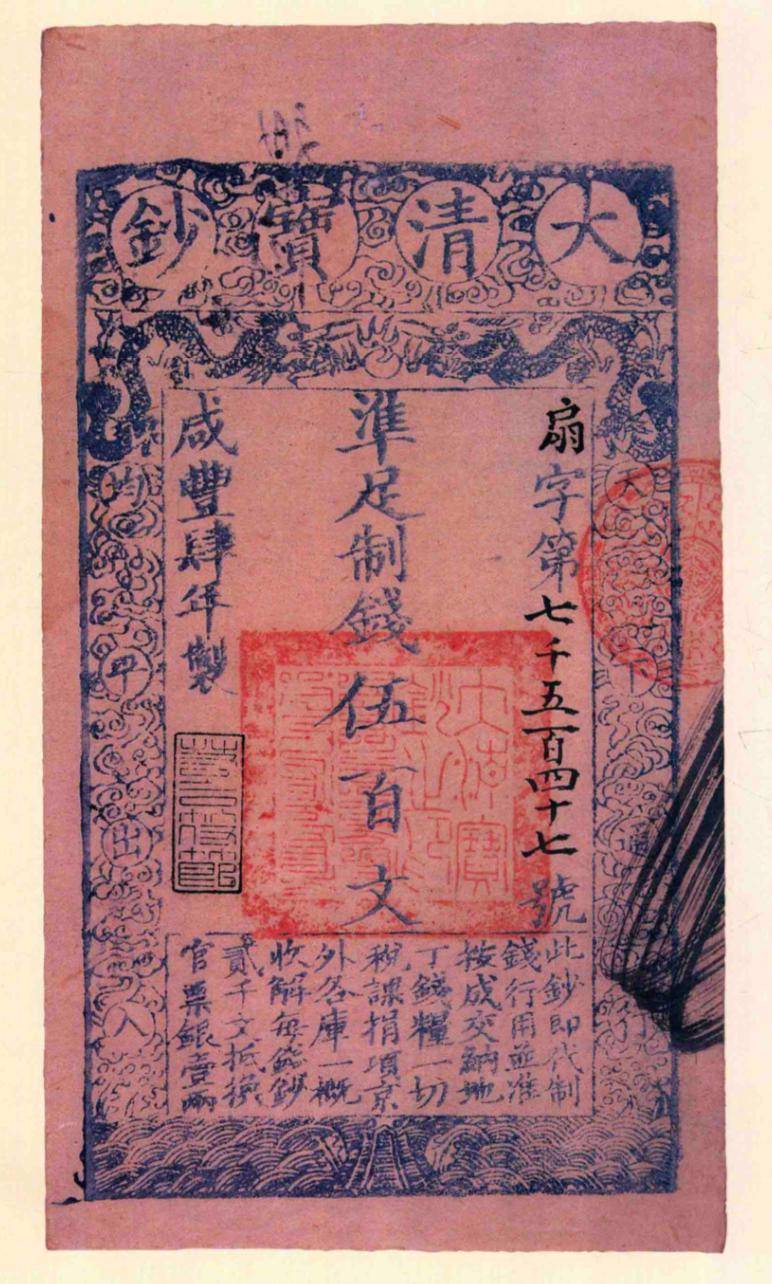 大清寶鈔
天下通行
扇字第七千五百四十七號
準足制錢伍百文
咸豐肆年製
均平出入
此鈔即代制
錢行用並准
按成交納地
丁錢糧一切
稅課捐項京
外各庫一概
收解每錢鈔
貳千文抵換
官票銀壹兩
大清寶鈔之印